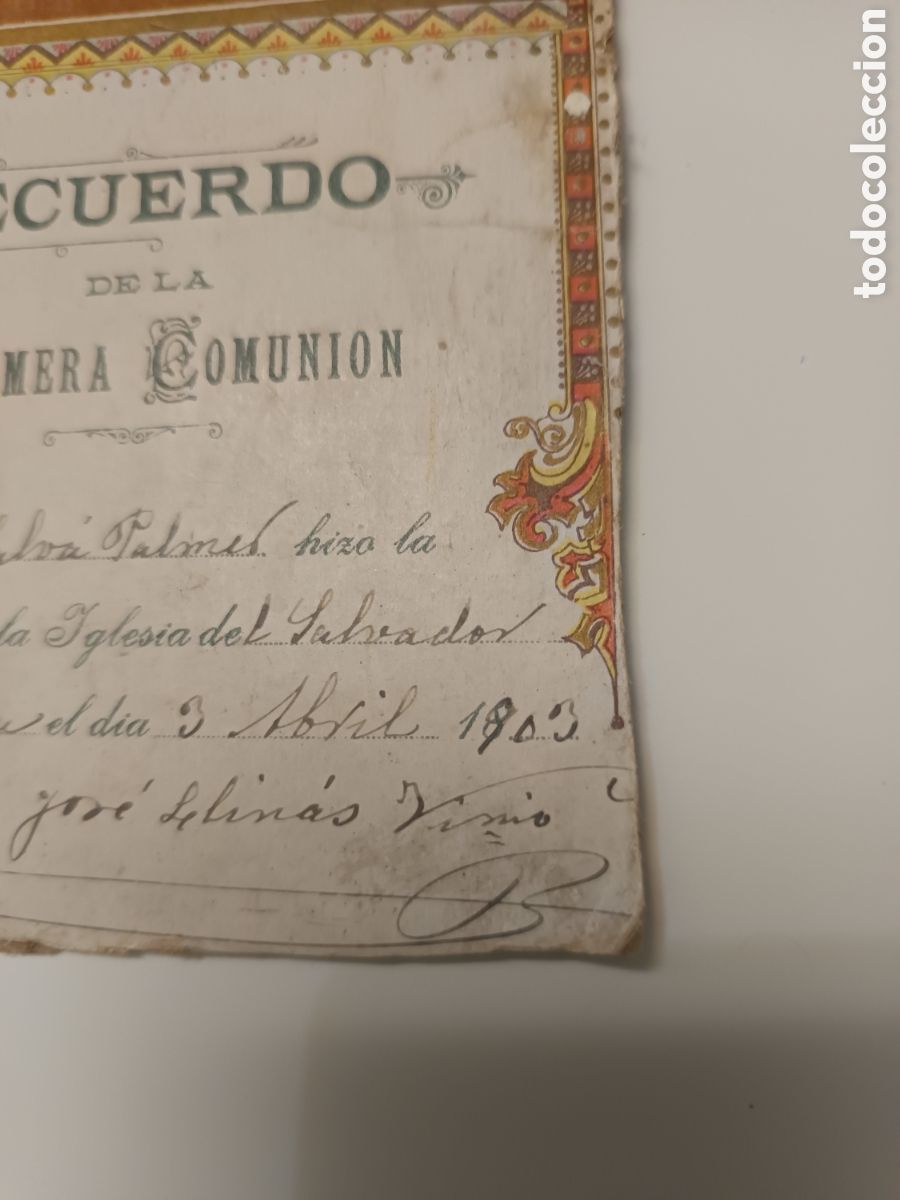 ECUERDO
DE LA
MERA COMUNION
alvá Palmer hizo la
la Iglesia del Salvador
el dia 3 Abril 1903
José Llinás
todocoleccion